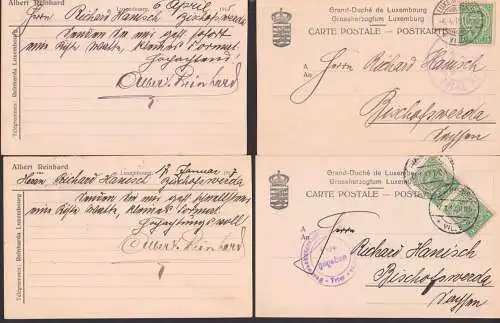 Albert Reinhard
Luxembourg, 6 April
Herrn Richard Hanisch Bischofswerda
Senden Sie mir sofort
eine Kiste Watte kleines Format.
Hochachtend
Albert Reinhard
Télégrammes: Reinharda Luxembourg.
Grand-Duché de Luxembourg
Grossherzogtum Luxemburg
CARTE POSTALE - POSTKARTE
A
An
Herrn Richard Hanisch
Bischofswerda
Sachsen
Albert Reinhard
Luxembourg, 17 Januar
Herrn Richard Hanisch Bischofswerda
Senden Sie mir gefl.
eine Kiste Watte, kleines Format
Hochachtungsvoll
Albert Reinhard
Télégrammes: Reinharda Luxembourg.
Grand-Duché de Luxembourg
Grossherzogtum Luxemburg
CARTE POSTALE - POSTKARTE
A
An
Richard Hanisch
Bischofswerda
Sachsen
Trier